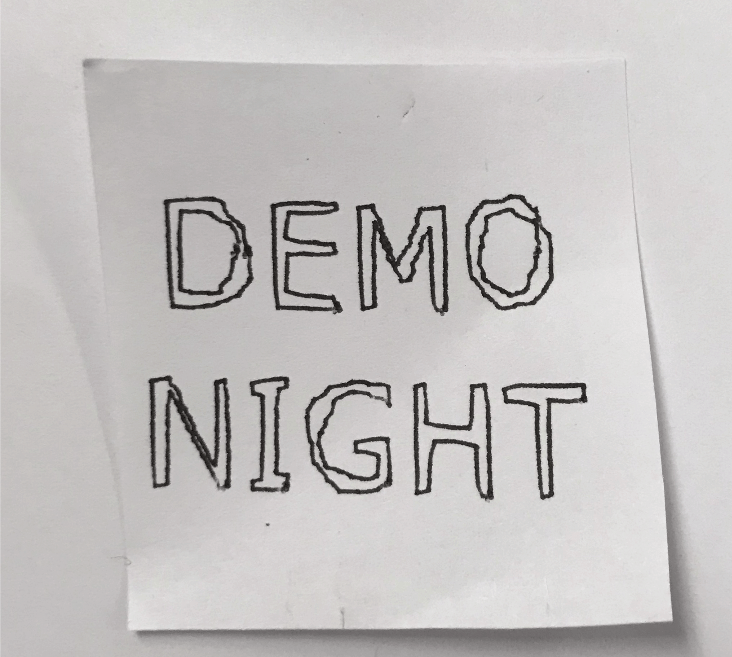 DEMO
NIGHT